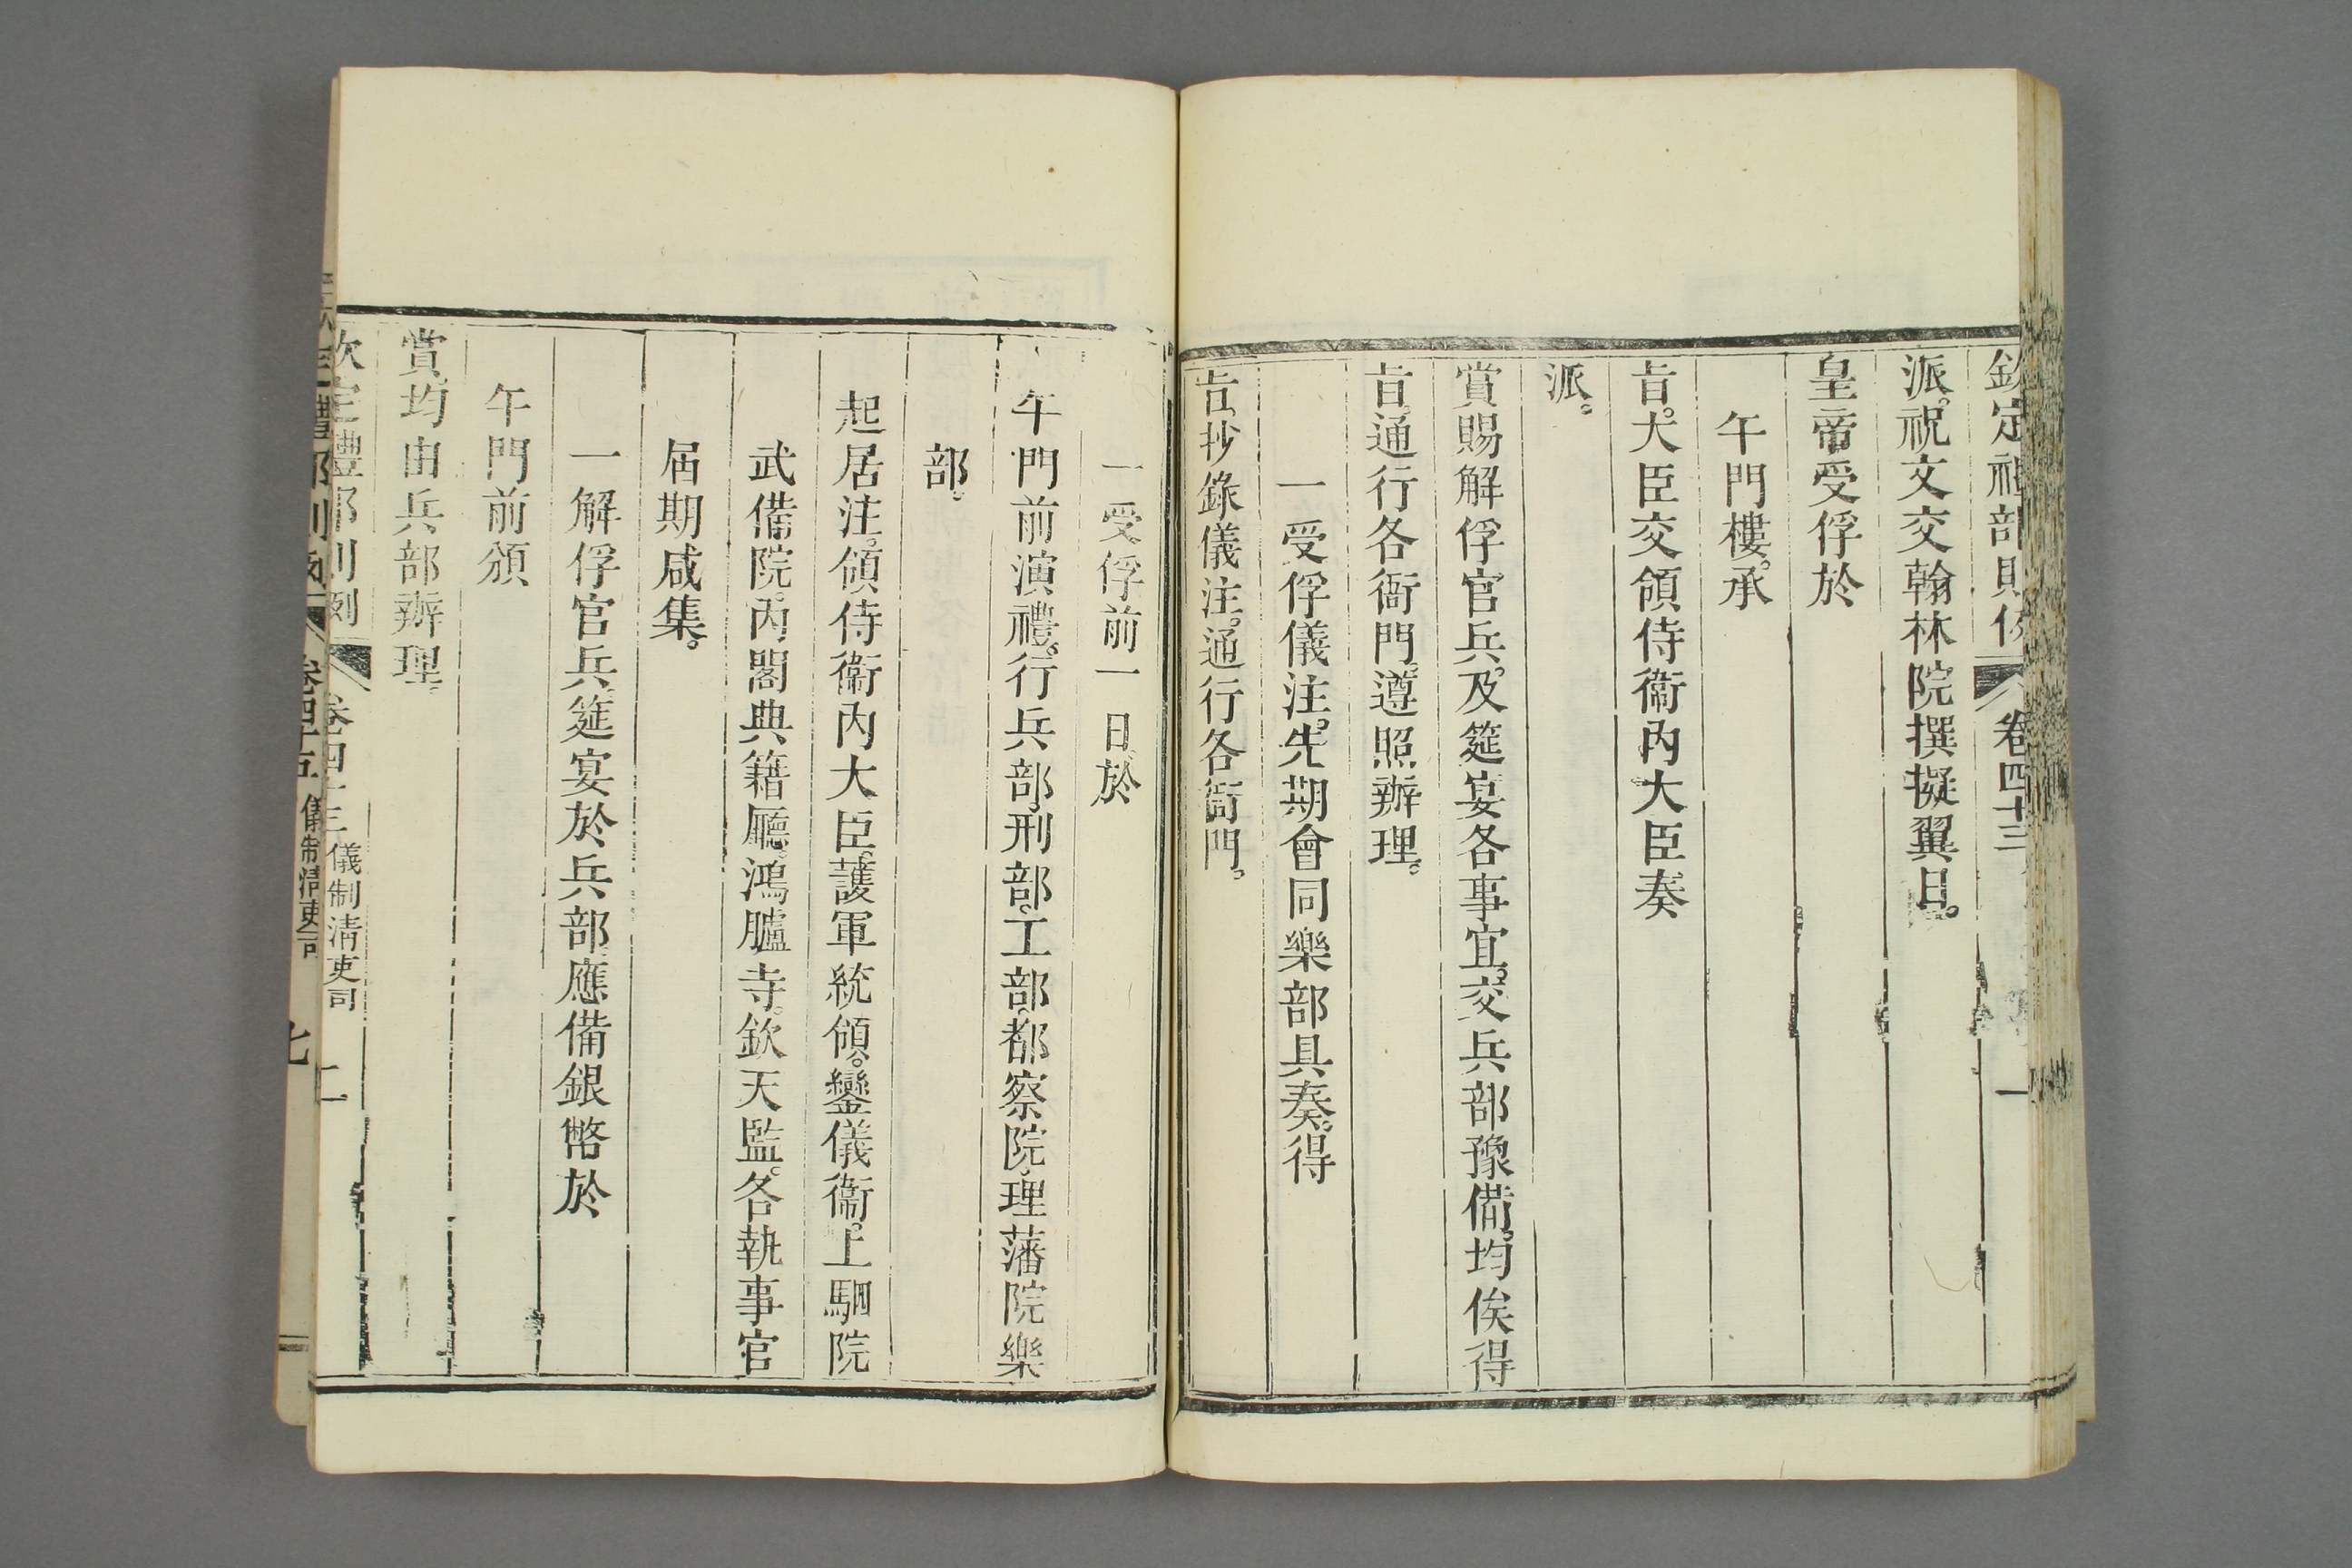 欽定禮部則例 卷四十三 一
派。祝文交翰林院撰擬翼日。
皇帝受俘於
午門樓。承
旨。大臣交領侍衞內大臣奏
派。
賞賜解俘官兵。及筵宴各事宜。交兵部豫備。均俟得
旨。通行各衙門。遵照辦理。
一受俘儀注。先期會同樂部具奏。得
旨。抄錄儀注。通行各衙門。
一受俘前一日。於
午門前演禮。行兵部。刑部。工部。都察院。理藩院。樂
部。
起居注。領侍衞內大臣。護軍統領。鑾儀衞。上駟院
武備院。內閣典籍廳。鴻臚寺。欽天監。各執事官
屆期咸集。
一解俘官兵。筵宴於兵部。應備銀幣於
午門前頒
賞。均由兵部辦理。
欽定禮部則例 卷四十三 儀制清吏司 二
欽定禮部則例 卷四十五 儀制清吏司 七